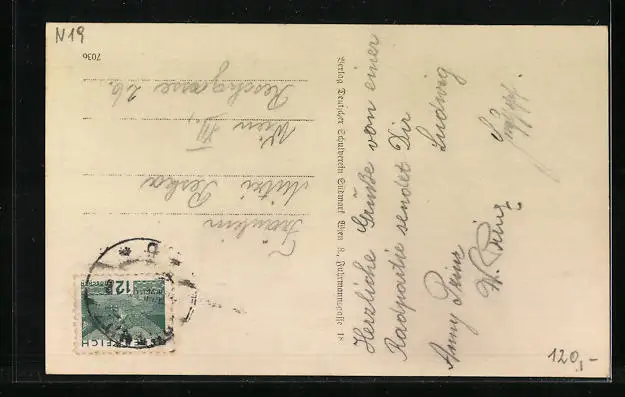 N19
7036
Fräulein
Mitzi Peska
Wien XII.,
Reschgasse 26.
Verlag Deutscher Schulverein Südmark, Wien 8., Fuhrmannsgasse 18
Herzliche Grüße von einer
Radpartie sendet Dir
Anny Prinz Ludwig
W. Prinz
12 g
ÖSTERREICH
120,-